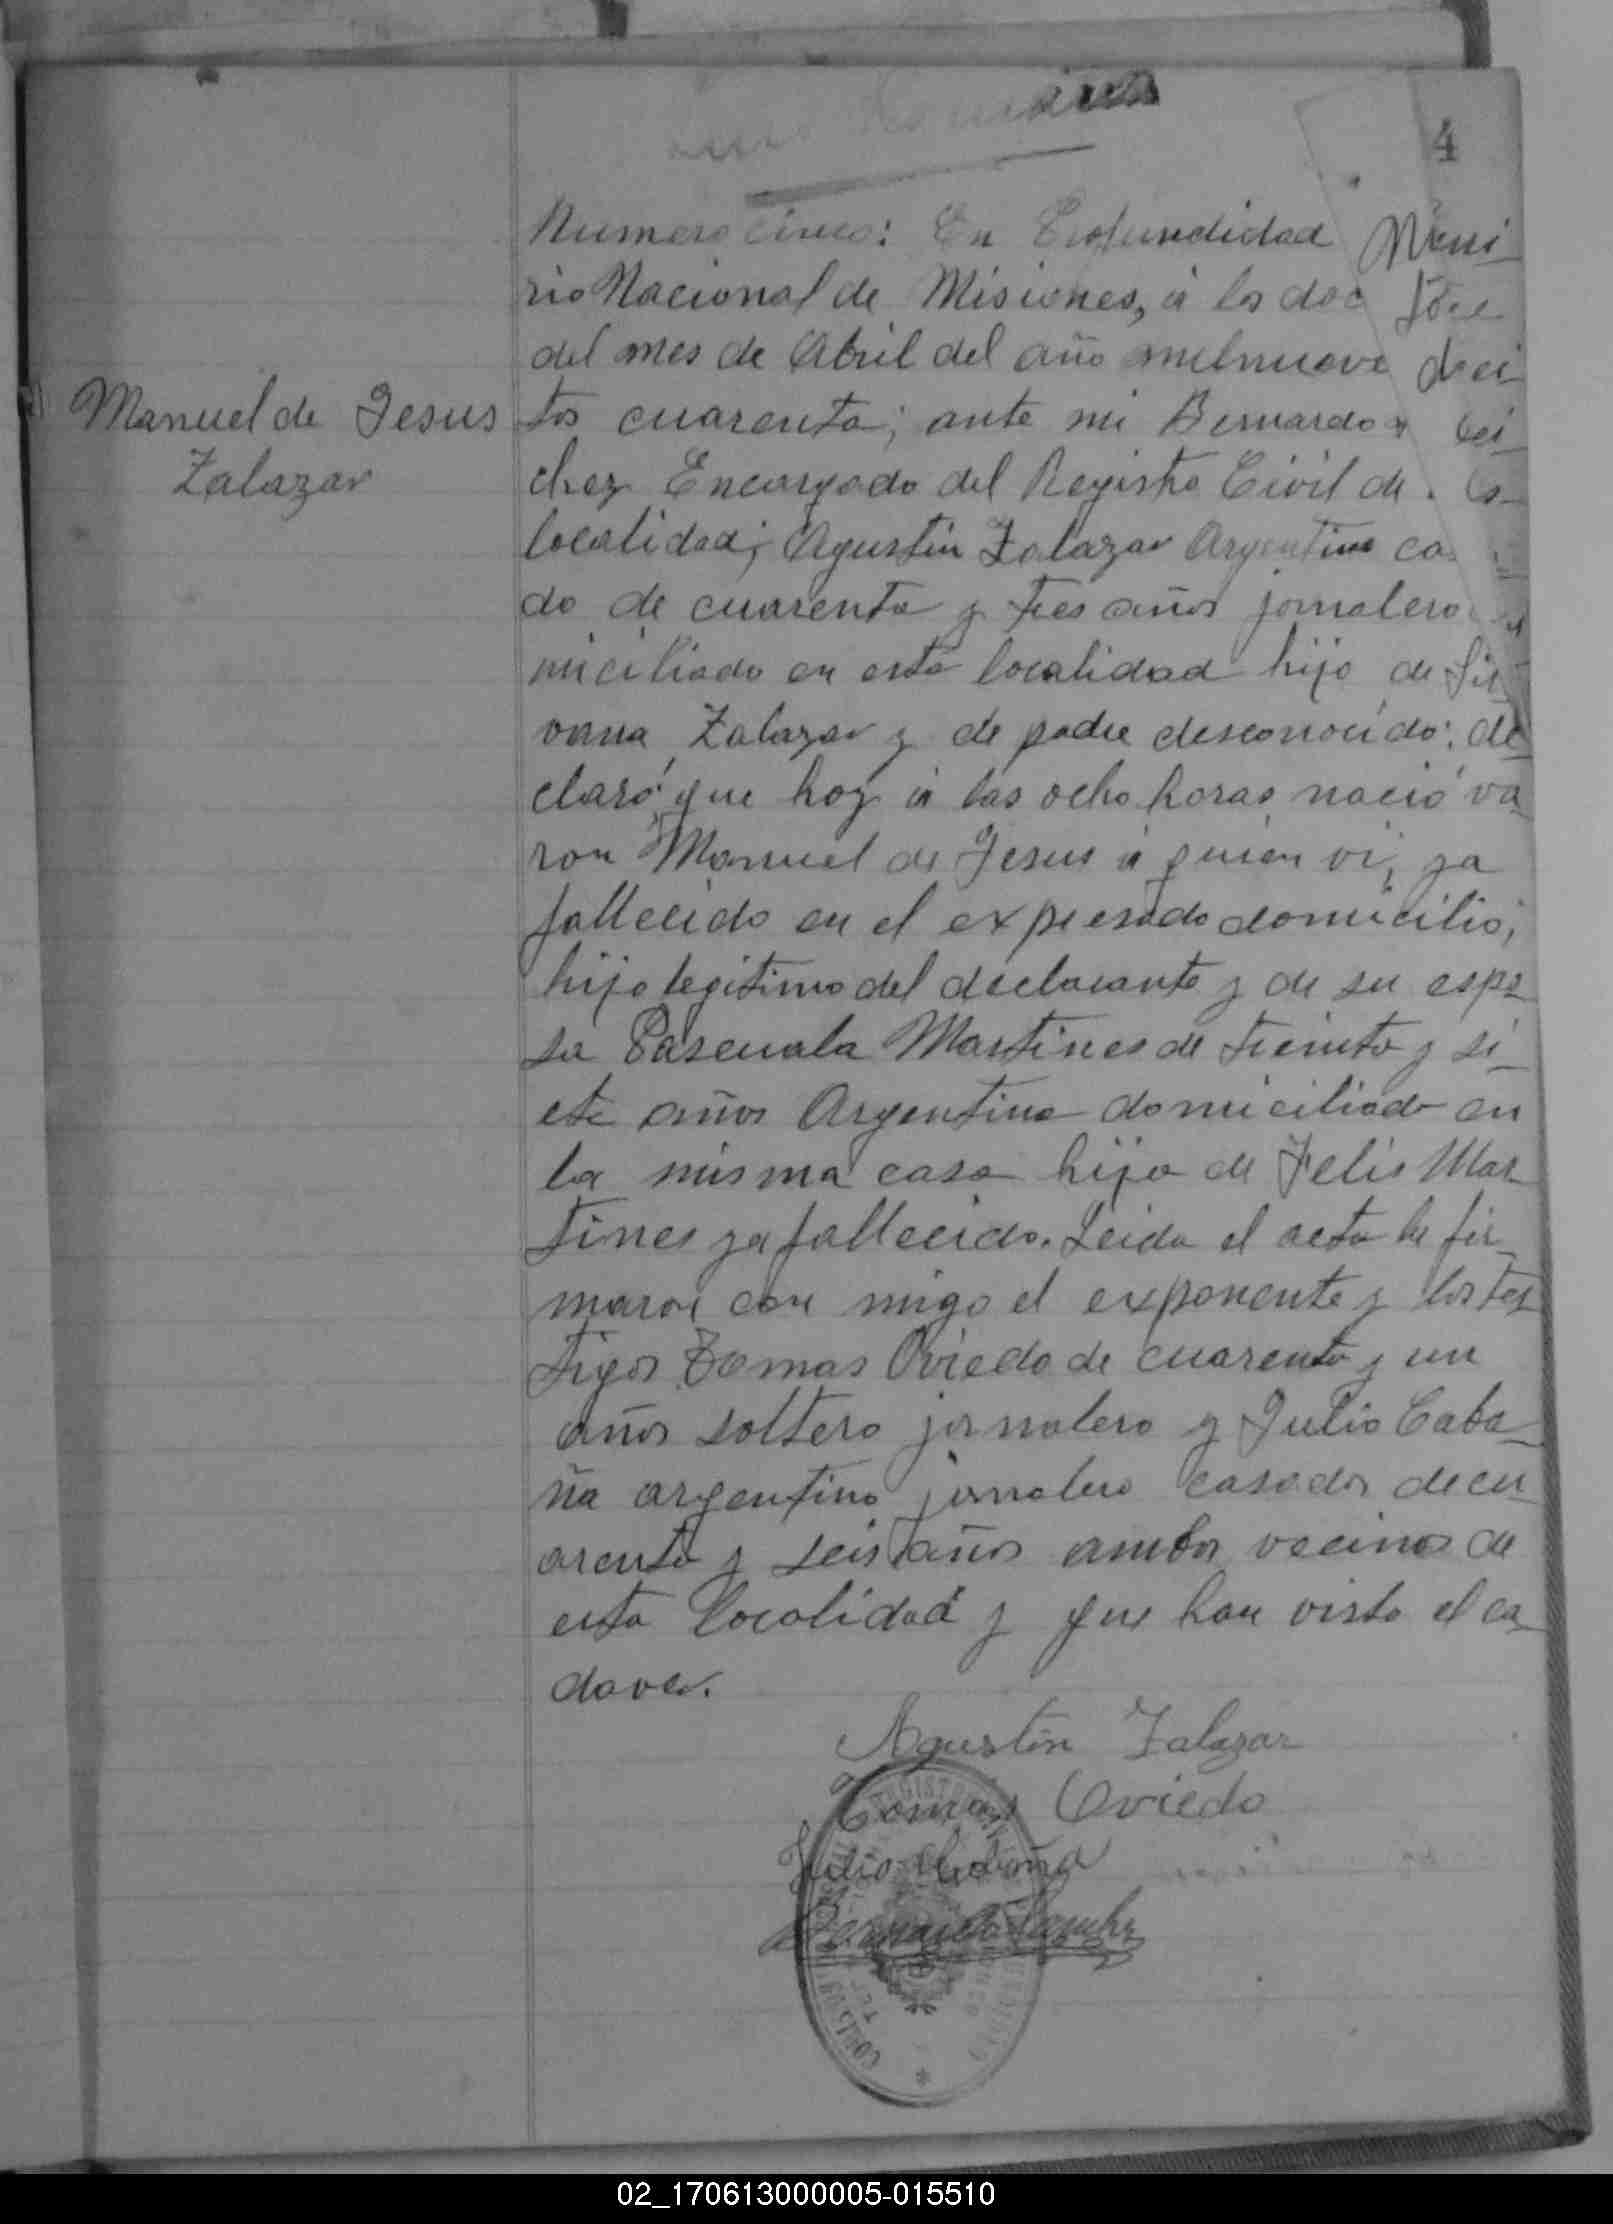 4
Numero cinco: En Profundidad
rio Nacional de Misiones, á los doc
del mes de Abril del año milnueve
Manuel de Jesus
Zalazar
tos cuarenta; ante mi Bernardo
chez Encargado del Registro Civil de
localidad; Agustin Zalazar Argentino ca
do de cuarenta y tres años jornalero
miciliado en esta localidad hijo de Sil
vana Zalazar y de padre desconocido; de
claró; que hoy á las ocho horas nació va
ron Manuel de Jesus á quien vi, ya
fallecido en el expresado domicilio;
hijo legitimo del declarante y de su espo
sa Pascuala Martines de treinta y si
ete años Argentina domiciliada en
la misma casa hija de Felis Mar
tines ya fallecido. Leida el acta la fir
maron con migo el exponente y los tes
tigos Tomas Oviedo de cuarenta y un
años soltero jornalero y Julio Caba
ña argentino jornalero casados de cu
arenta y seis años ambos vecinos de
esta localidad y que han visto el ca
daver.
Agustin Zalazar
Tomas Oviedo
Julio Cabaña
Bernardo Sanchez
02_170613000005-015510